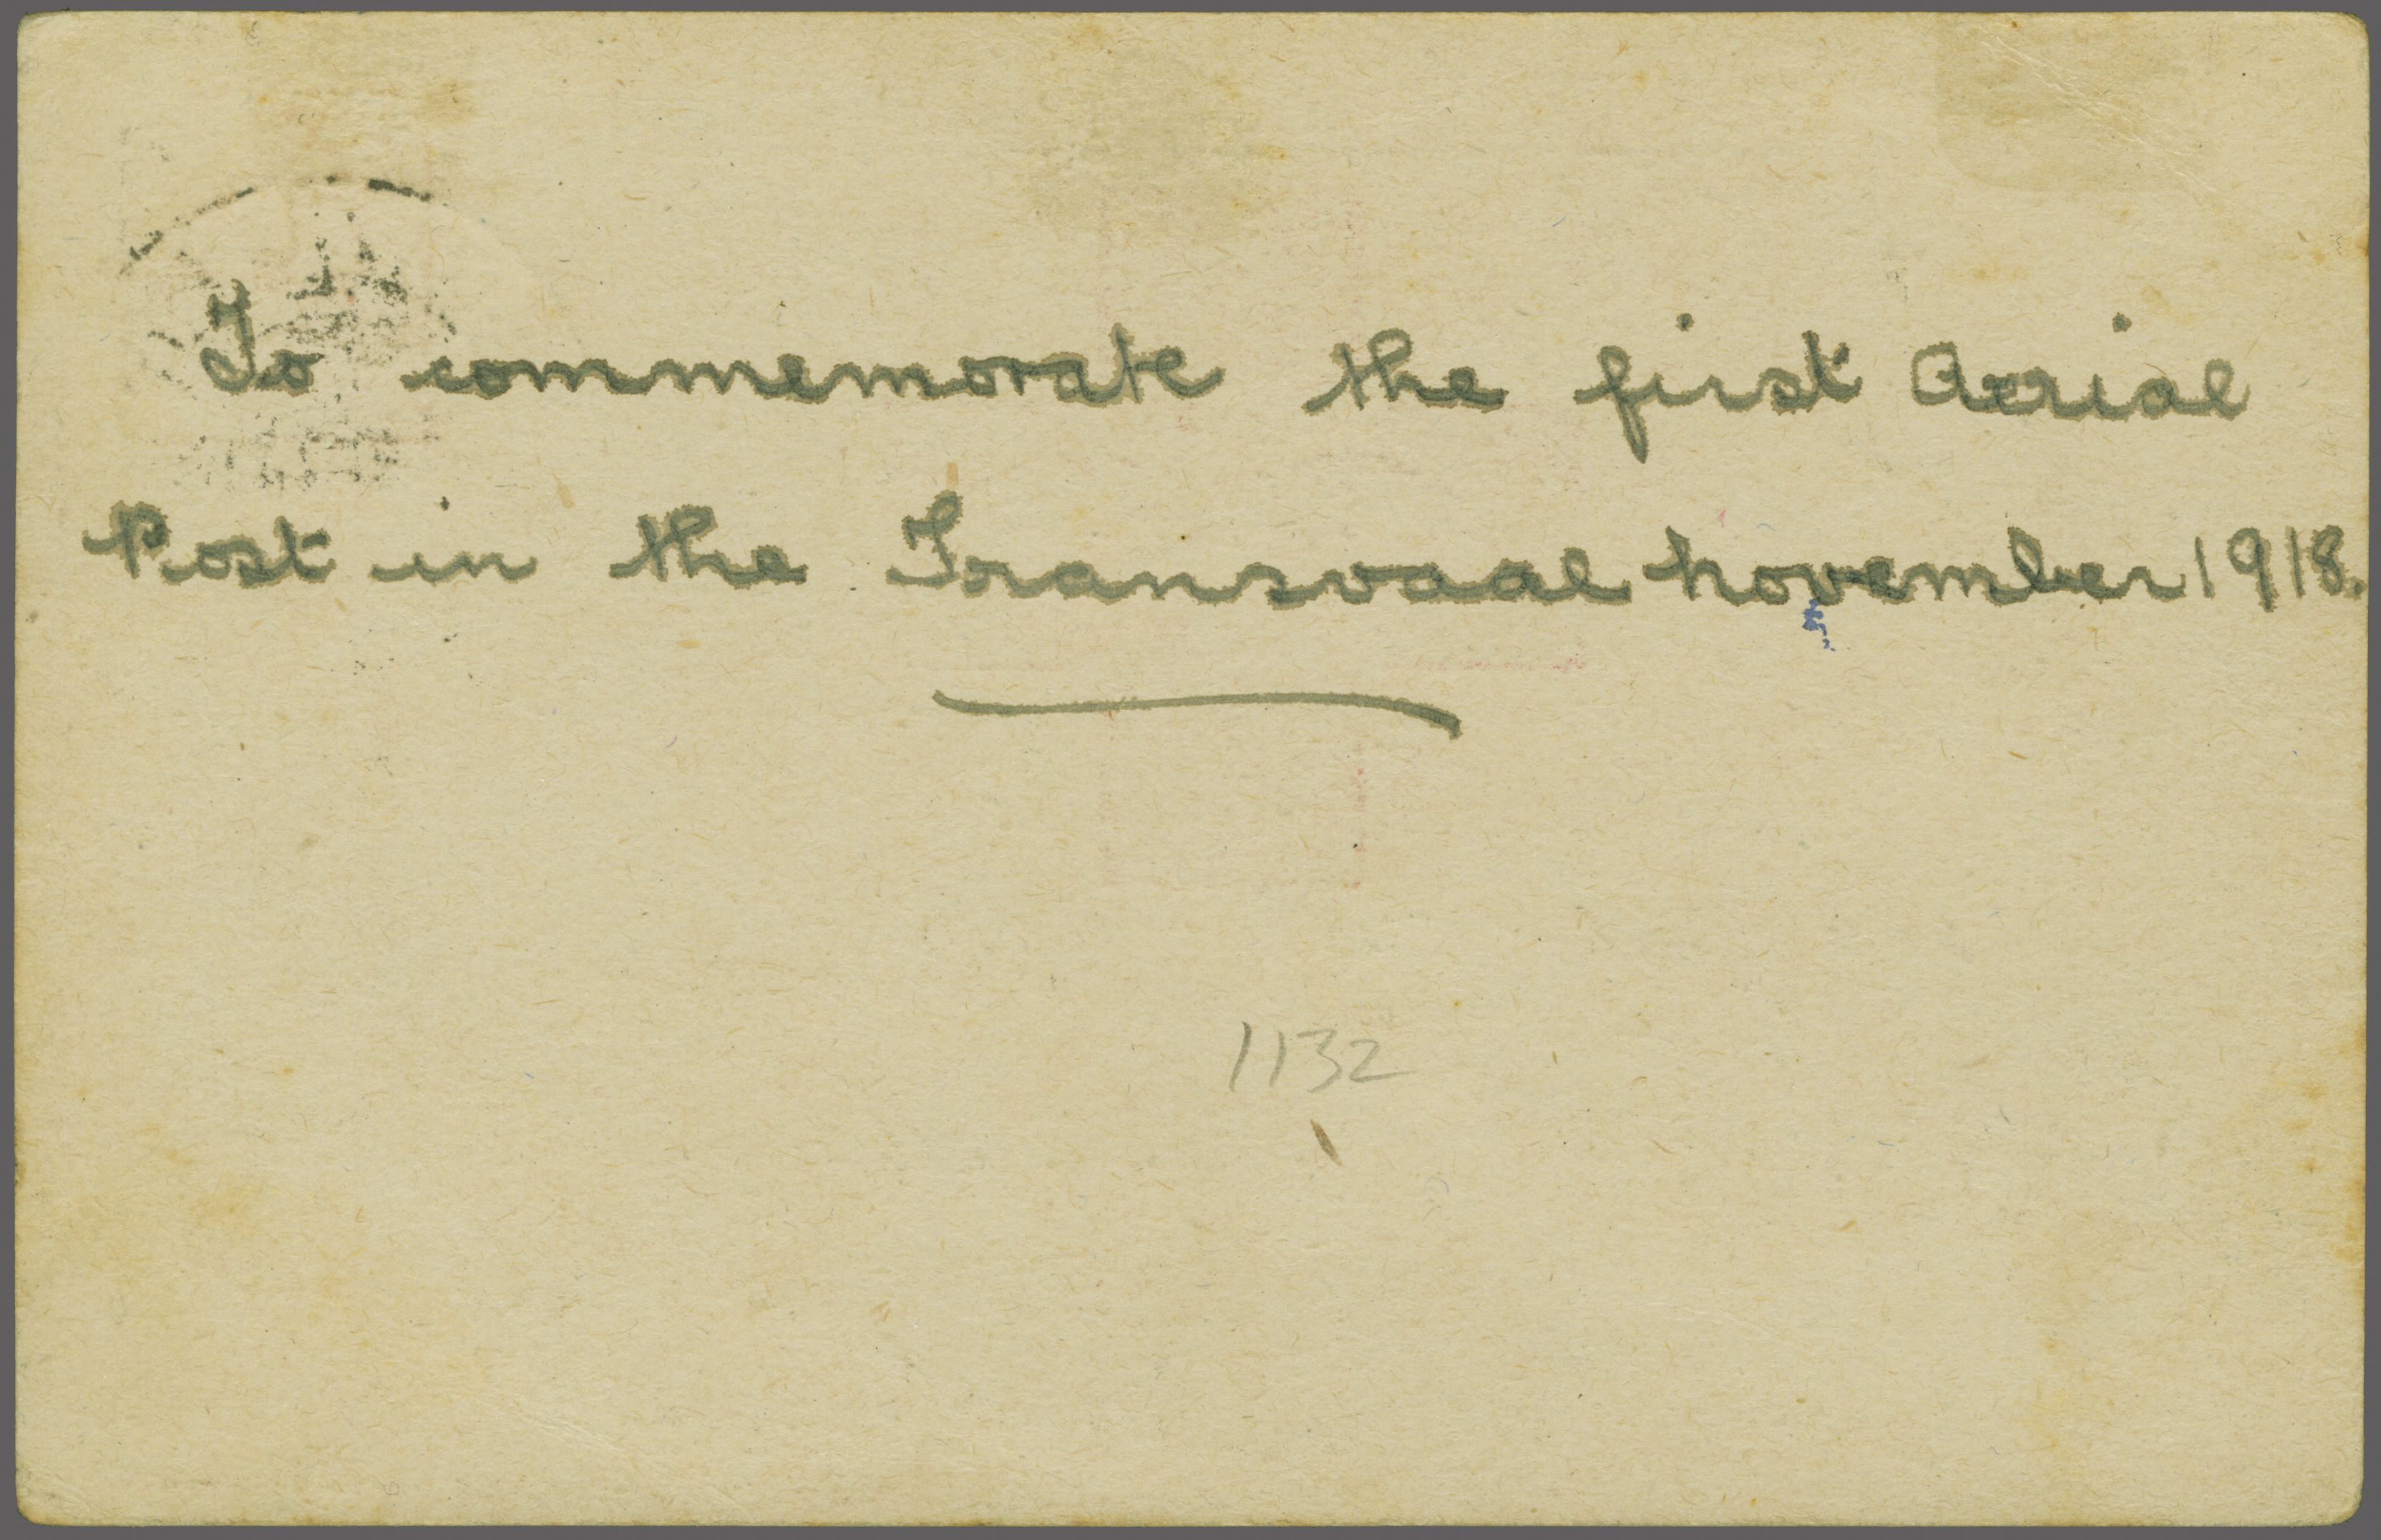 To commemorate the first Aerial
Post in the Transvaal november 1918.
1132